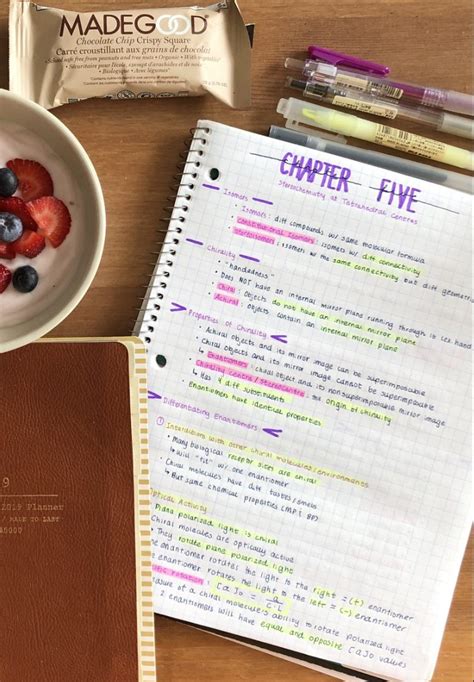 MADEGOOD
Chocolate Chip Crispy Square
Carré croustillant aux grains de chocolat
CHAPTER FIVE
Stereochemistry at Tetrahedral Centres
Isomers
• Isomers: diff compounds w/ same molecular formula
• Constitutional Isomers: isomers w/ diff connectivity
• Stereoisomers: isomers w/ the same connectivity but diff geometry
Chirality
• "handedness"
• Does NOT have an internal mirror plane running through it
• Chiral: Objects do not have an internal mirror plane
• Achiral: Objects contain an internal mirror plane
Properties of Chirality
• Achiral objects and its mirror image can be superimposable
• Chiral objects and its mirror image cannot be superimposable
↳ Enantiomers: chiral object and its nonsuperimposable mirror image
• Chirality Centre/Stereocentre: the origin of chirality
↳ Has 4 diff substituents
• Enantiomers have identical properties
Differentiating Enantiomers
① Interactions with other chiral molecules/environments
• Many biological receptor sites are chiral
↳ Will "fit" w/ one enantiomer
• Chiral molecules have diff tastes/smells
↳ But same chemical properties (MP, BP)
Optical Activity
• Plane polarized light is chiral
Chiral molecules are optically active
• They rotate plane polarized light
enantiomer rotates the light to the right = (+) enantiomer
enantiomer rotates the light to the left = (-) enantiomer
rotation: [α]D = α / C·L
measure of a chiral molecule's ability to rotate polarized light
2 enantiomers will have equal and opposite [α]D values
9
2019 Planner